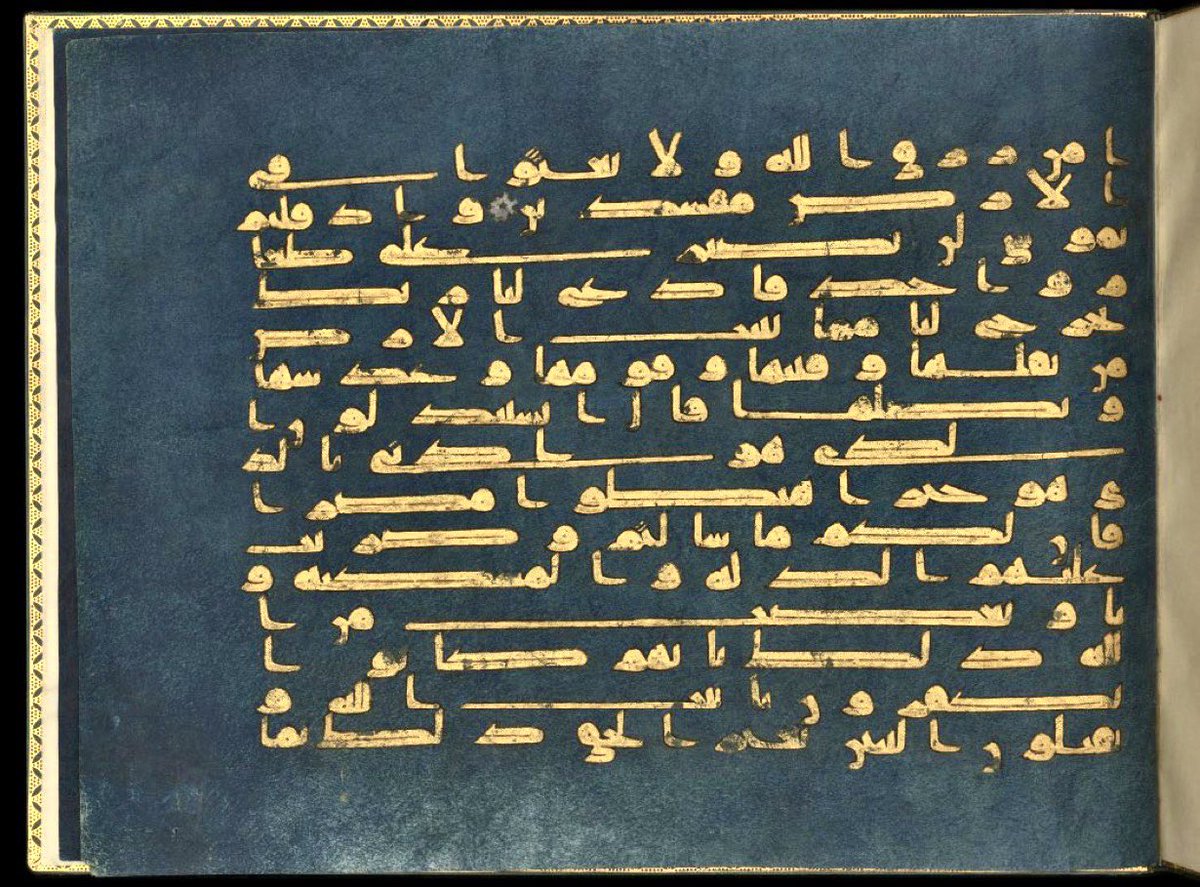 ا من رزق الله ولا تعثوا في
الارض مفسدين واذ قلتم
يموسى لن نصبر على طعا
م واحد فادع لنا ربك
يخرج لنا مما تنبت الارض
من بقلها وقثائها وفومها وعدسها
وبصلها قال اتستبدلون ا
لذي هو ادنى بالذ
ي هو خير اهبطوا مصرا
فان لكم ما سالتم وضربت
عليهم الذلة والمسكنة و
باو بغضب من ا
لله ذلك بانهم كانوا
يكفرون بايت الله و
يقتلون النبين بغير الحق ذلك بما